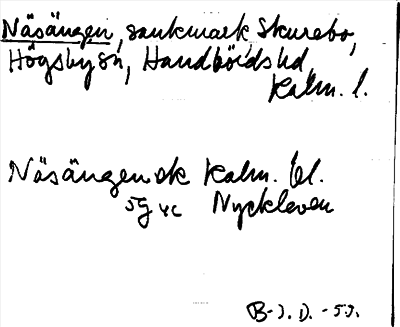 Näsängen, sankmark, Skurebo,
Högsby sn, Handbörds hd,
Kalm. l.
Näsängen ek Kalm. bl.
5g 4c Nyckleven
B-J. D. - 53.